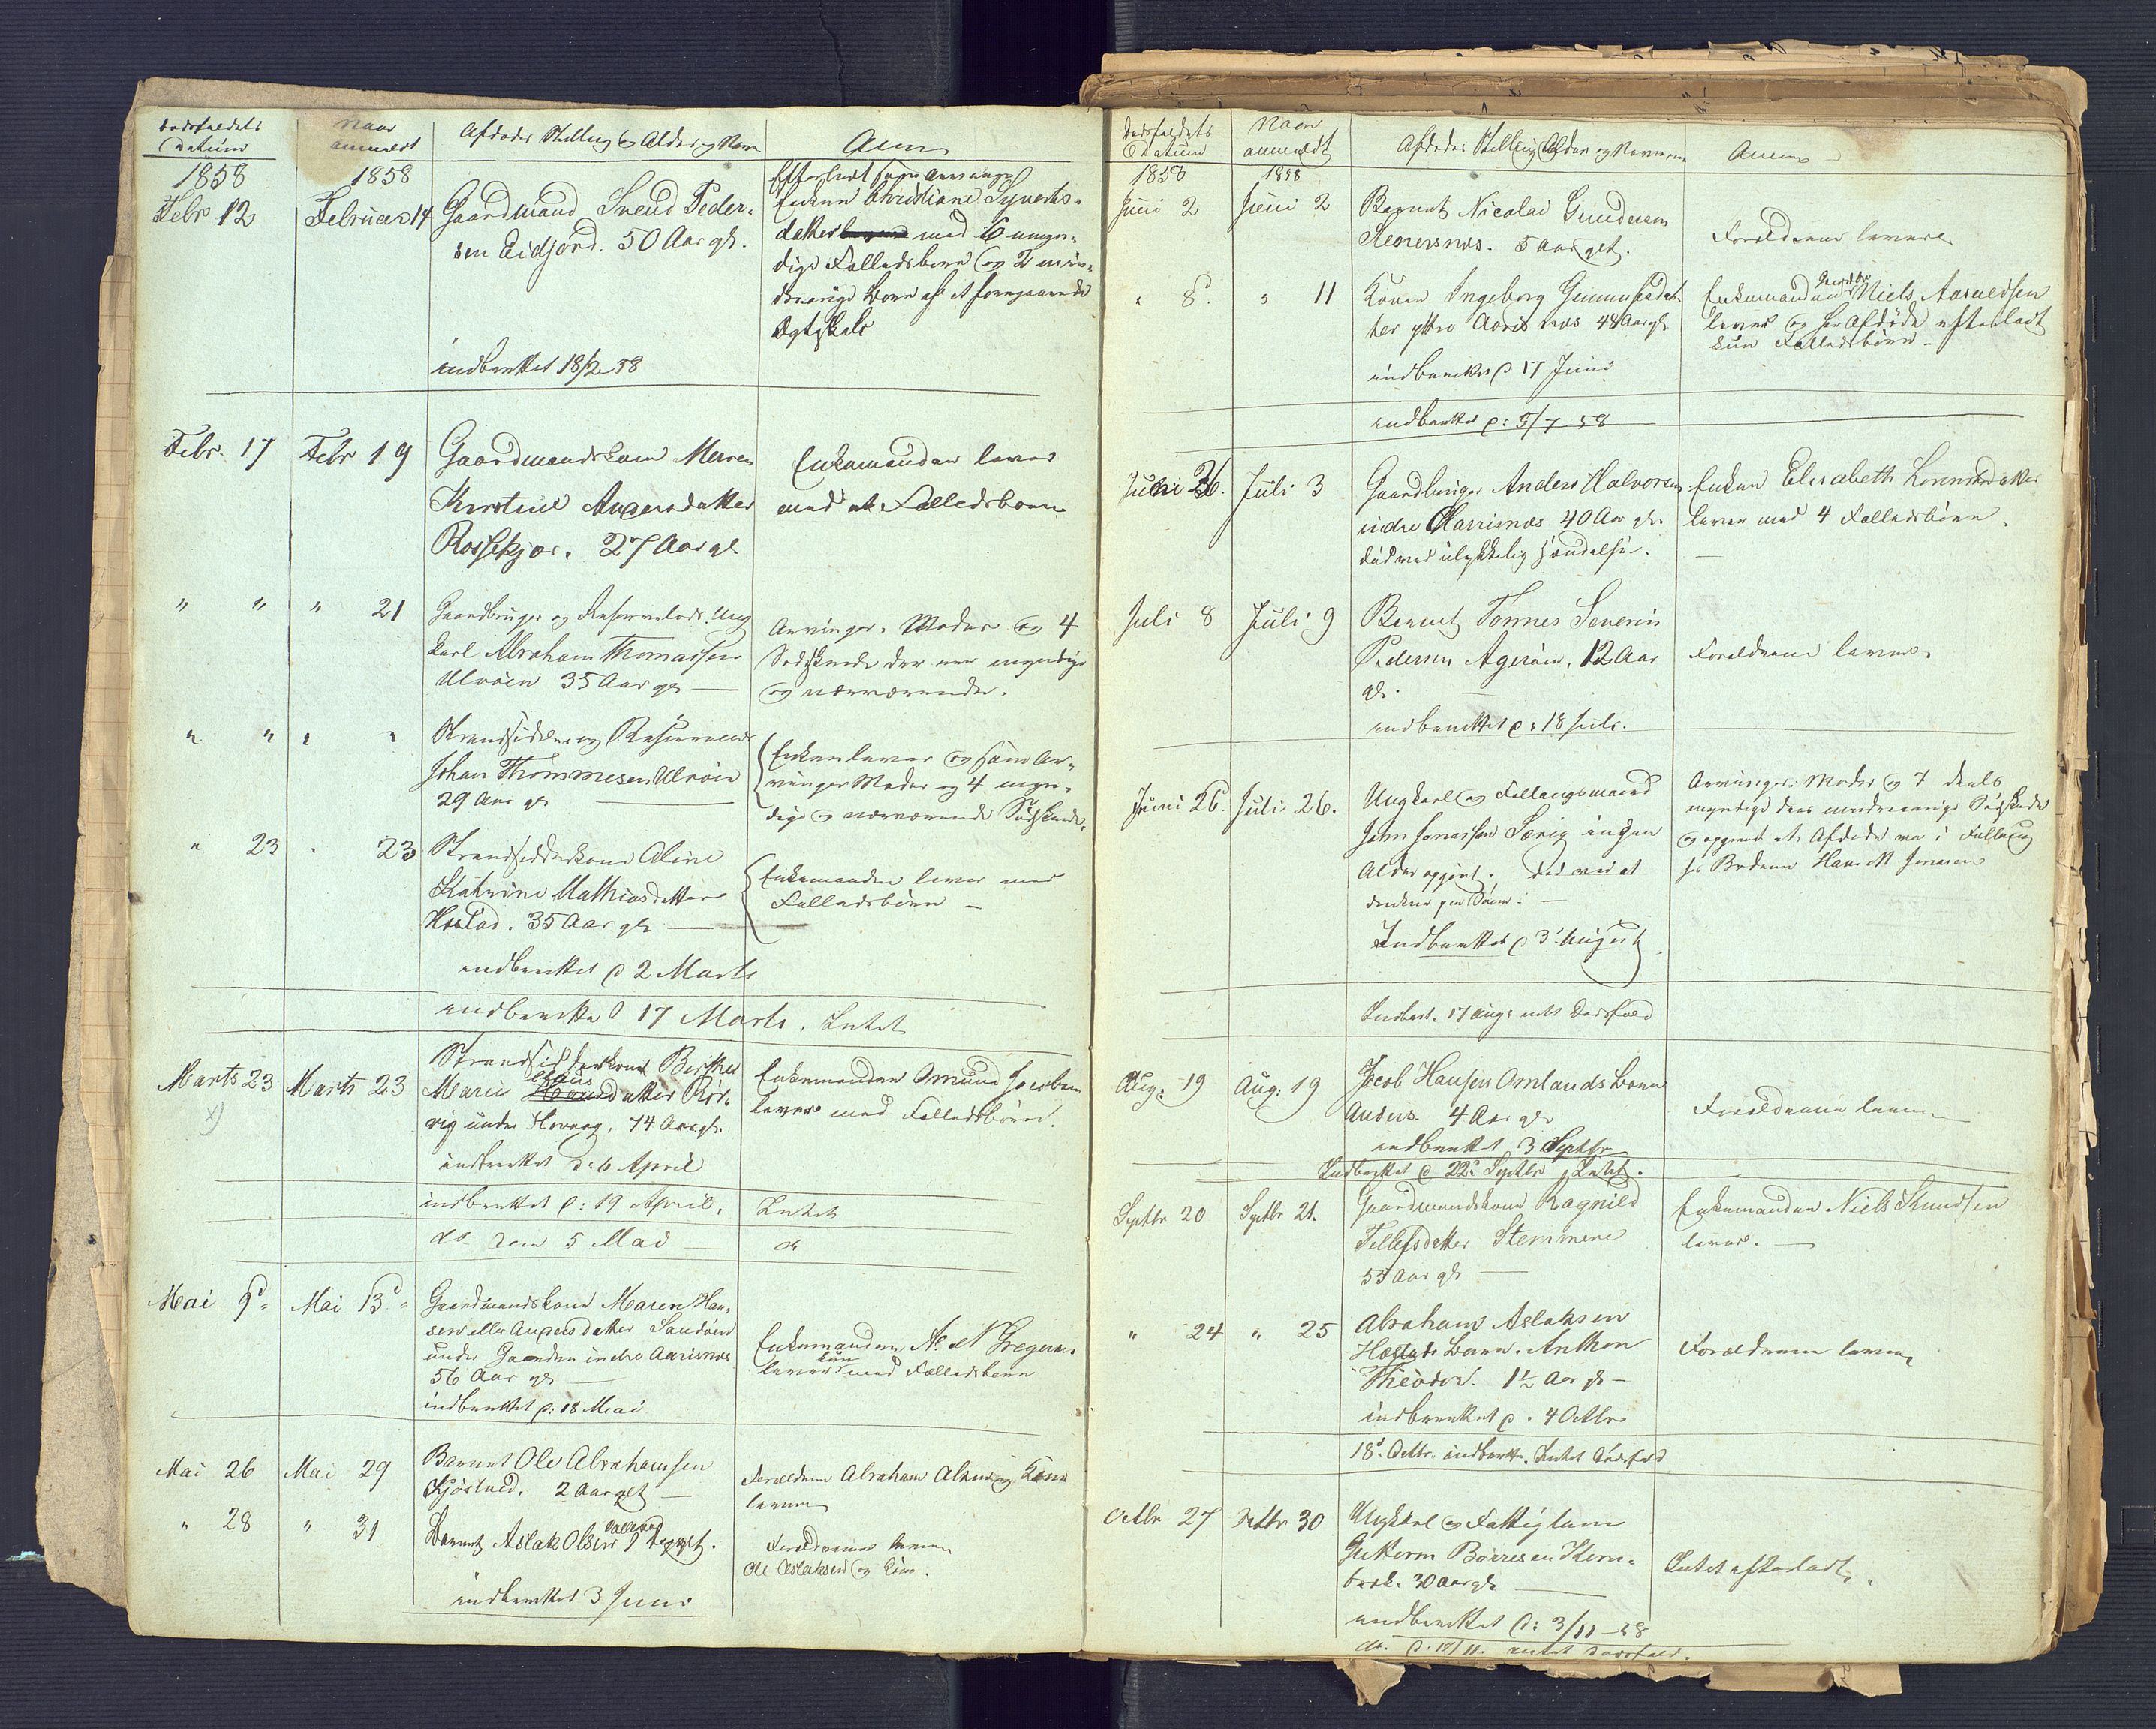 Dødsfaldets Datum
Naar anmeldt
Afdødes Stilling og Alder og Navn
Anm
1858
1858
Febr 12
Februar 14
Gaardmand Svend Peder-
sen Eidjord. 50 Aar gl.
Efterladt sig
Enken Christiane Syverts-
datter med 6 umyn-
dige Fælledsbørn og 2 min-
dreaarige Børn af et foregaaende
Ægteskab
indberettet 18/2 58
Febr. 17
Febr 19
Gaardmandskone Maren
Kirstine Aanensdatter
Rossekjær. 27 Aar gl.
Enkemanden lever
med et Fælledsbarn
" "
" 21
Gaardbruger og Ung
karl Abraham Thomassen
Ulvøen 35 Aar gl —
Arvinger: Moder og 4
Sødskende der ere myndige
og nærværende.
" "
" "
Strandsidder og
Johan Thommesen Ulvøen
29 Aar gl
Enken lever og hans Ar-
vinger Moder og 4 myn-
dige og nærværende Sødskende.
" 23
" 23
Strandsidderkone Aline
Katrine Mathiasdatter
Høstad. 35 Aar gl —
Enkemanden lever med
Fælledsbørn —
indberettet d 2 Marts
indberettet d 17 Marts. Intet
Marts 23
x)
Marts 23
Strandsidderkone Birthe
Marie Claus datter Kør-
vig under Hovaag, 74 Aar gl.
Enkemanden Omund Jacobsen
lever med Fælledsbørn.
indberettet d: 6 April
indberettet d: 19 April.
Intet
do den 5 Mai
do
Mai 9d
Mai 13d
Gaardmandskone Maren Han-
sen eller Aanensdatter Sandøen
under Gaarden indre Aarisnæs
56 Aar gl
Enkemanden A. N Gregersen
lever kun med Fælledsbørn
indberettet d: 18 Mai
Mai 26
Mai 29
Barnet Ole Abrahamsen
Kjøstved. 2 Aar glt —
Forældrene Abraham og Kone
lever
" 28
" 31
Barnet Aslak Olsen 9 Dage glt.
Forældrene lever
Ole Aslaksen og Kone.
indberettet 3 Juni
Dødsfaldets Datum
Naar anmeldt
Afdødes Stilling Alder og Navn
Anm
1858
1858
Juni 2
Juni 2
Barnet Nicolai Gundersen
5 Aar glt.
Forældrene lever
" 8.
" 11
Konen Ingeborg Gunnufsdat-
ter yttre Aarisnæs 48 Aar gl
Enkemanden Niels Aanedsen
lever og har Afdøde efterladt
kun Fælledsbørn —
indberettet d 17 Juni
indberettet d: 5/7 58
Juni 26.
Juli 3
Gaardbruger Anders Halvorsen
indre Aarisnæs 40 Aar gl.
død ved ulykkelig Hændelse.
Enken Elisabeth Lorentsdatter
lever med 4 Fælledsbørn.
Juli 8
Juli 9
Barnet Tønnes Severin
Pedersen Agerøen, 12 Aar
gl.
Forældrene lever.
indberettet d: 18 Juli.
Juni 26.
Juli 26.
Ungkarl og
John Jonassen Sørig ingen
Alder opgivet. Død ved at
drukne paa Søen. —
Arvinger: Moder og 7 deels
myndige deels mindreaarige Sødskende
og opgivet at Afdøde var i Fællig
hos Broderen Hans M Jonassen
Indberettet d 3 August
Indbert. 17 Aug: intet Dødsfald
Aug: 19
Aug: 19
Jacob Hansen Omlands Barn
Anders. 4 Aar gl
Forældrene lever
indberettet 3 Septbr
Indberettet d 22 Septbr Intet.
Septbr 20
Septbr 21.
Gaardmandskone Ragnild
Tellefsdatter Stemmene
55 Aar gl —
Enkemanden Niels Knudsen
lever. —
" 24
" 25
Abraham Aslaksen
Høstads Barn. Anthon
Theodor. 1½ Aar gl —
Forældrene lever
indberettet d. 4 Octbr
18d Octbr indberettet. Intet Dødsfald
Octbr 27
Octbr 30
Ungkarl og Fattiglem
Guttorm Børresen
30 Aar gl
Intet efterladt.
indberettet d: 3/11 58
do. d: 18/11. intet Dødsfald.